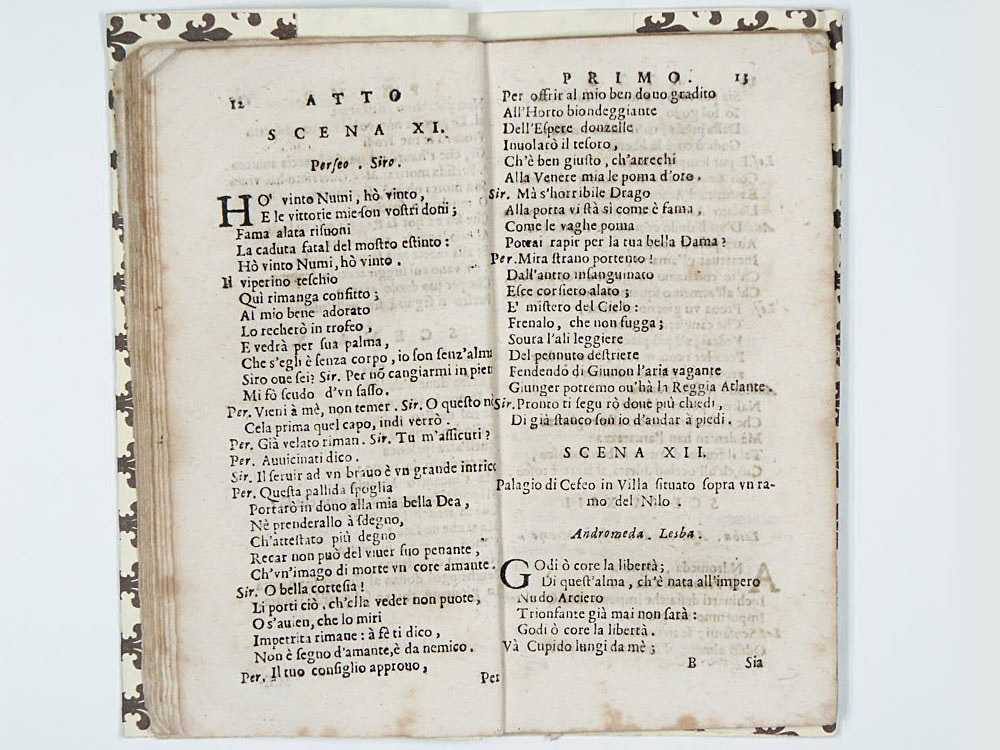 12 ATTO
SCENA XI.
Perseo. Siro.
HO' vinto Numi, hò vinto,
E le vittorie mie son vostri doni;
Fama alata risuoni
La caduta fatal del mostro estinto:
Hò vinto Numi, hò vinto.
Il viperino teschio
Quì rimanga confitto;
Al mio bene adorato
Lo recherò in trofeo,
E vedrà per sua palma,
Che s'egli è senza corpo, io son senz'alma
Siro oue sei? Sir. Per nõ cangiarmi in piet
Mi fò scudo d'vn sasso.
Per. Vieni à mè, non temer. Sir. O questo nò
Cela prima quel capo, indi verrò.
Per. Già velato riman. Sir. Tu m'assicuri?
Per. Auuicinati dico.
Sir. Il seruir ad vn brauo è vn grande intrico
Per. Questa pallida spoglia
Portarò in dono alla mia bella Dea,
Nè prenderallo à sdegno,
Ch'attestato più degno
Recar non può del viuer suo penante,
Ch'vn'imago di morte vn core amante.
Sir. O bella cortesia!
Li porti ciò, ch'ella veder non puote,
O s'auien, che lo miri
Impetrita rimane: à fè ti dico,
Non è segno d'amante, è da nemico.
Per. Il tuo consiglio approuo,
Per
PRIMO. 13
Per offrir al mio ben dono gradito
All'Horto biondeggiante
Dell'Espere donzelle
Inuolarò il tesoro,
Ch'è ben giusto, ch'arrechi
Alla Venere mia le poma d'oro.
Sir. Mà s'horribile Drago
Alla porta vi stà sì come è fama,
Come le vaghe poma
Potrai rapir per la tua bella Dama?
Per. Mira strano portento!
Dall'antro insanguinato
Esce corsiero alato;
E' mistero del Cielo:
Frenalo, che non fugga;
Soura l'ali leggiere
Del pennuto destriere
Fendendo di Giunon l'aria vagante
Giunger potremo ou'hà la Reggia Atlante.
Sir. Pronto ti segu rò doue più chiedi,
Di già stanco son io d'andar à piedi.
SCENA XII.
Palagio di Cefeo in Villa situato sopra vn ra-
mo del Nilo.
Andromeda. Lesba.
GOdi ò core la libertà;
Di quest'alma, ch'è nata all'impero
Nudo Arciero
Trionfante già mai non sarà:
Godi ò core la libertà.
Và Cupido lungi da mè;
B Sia